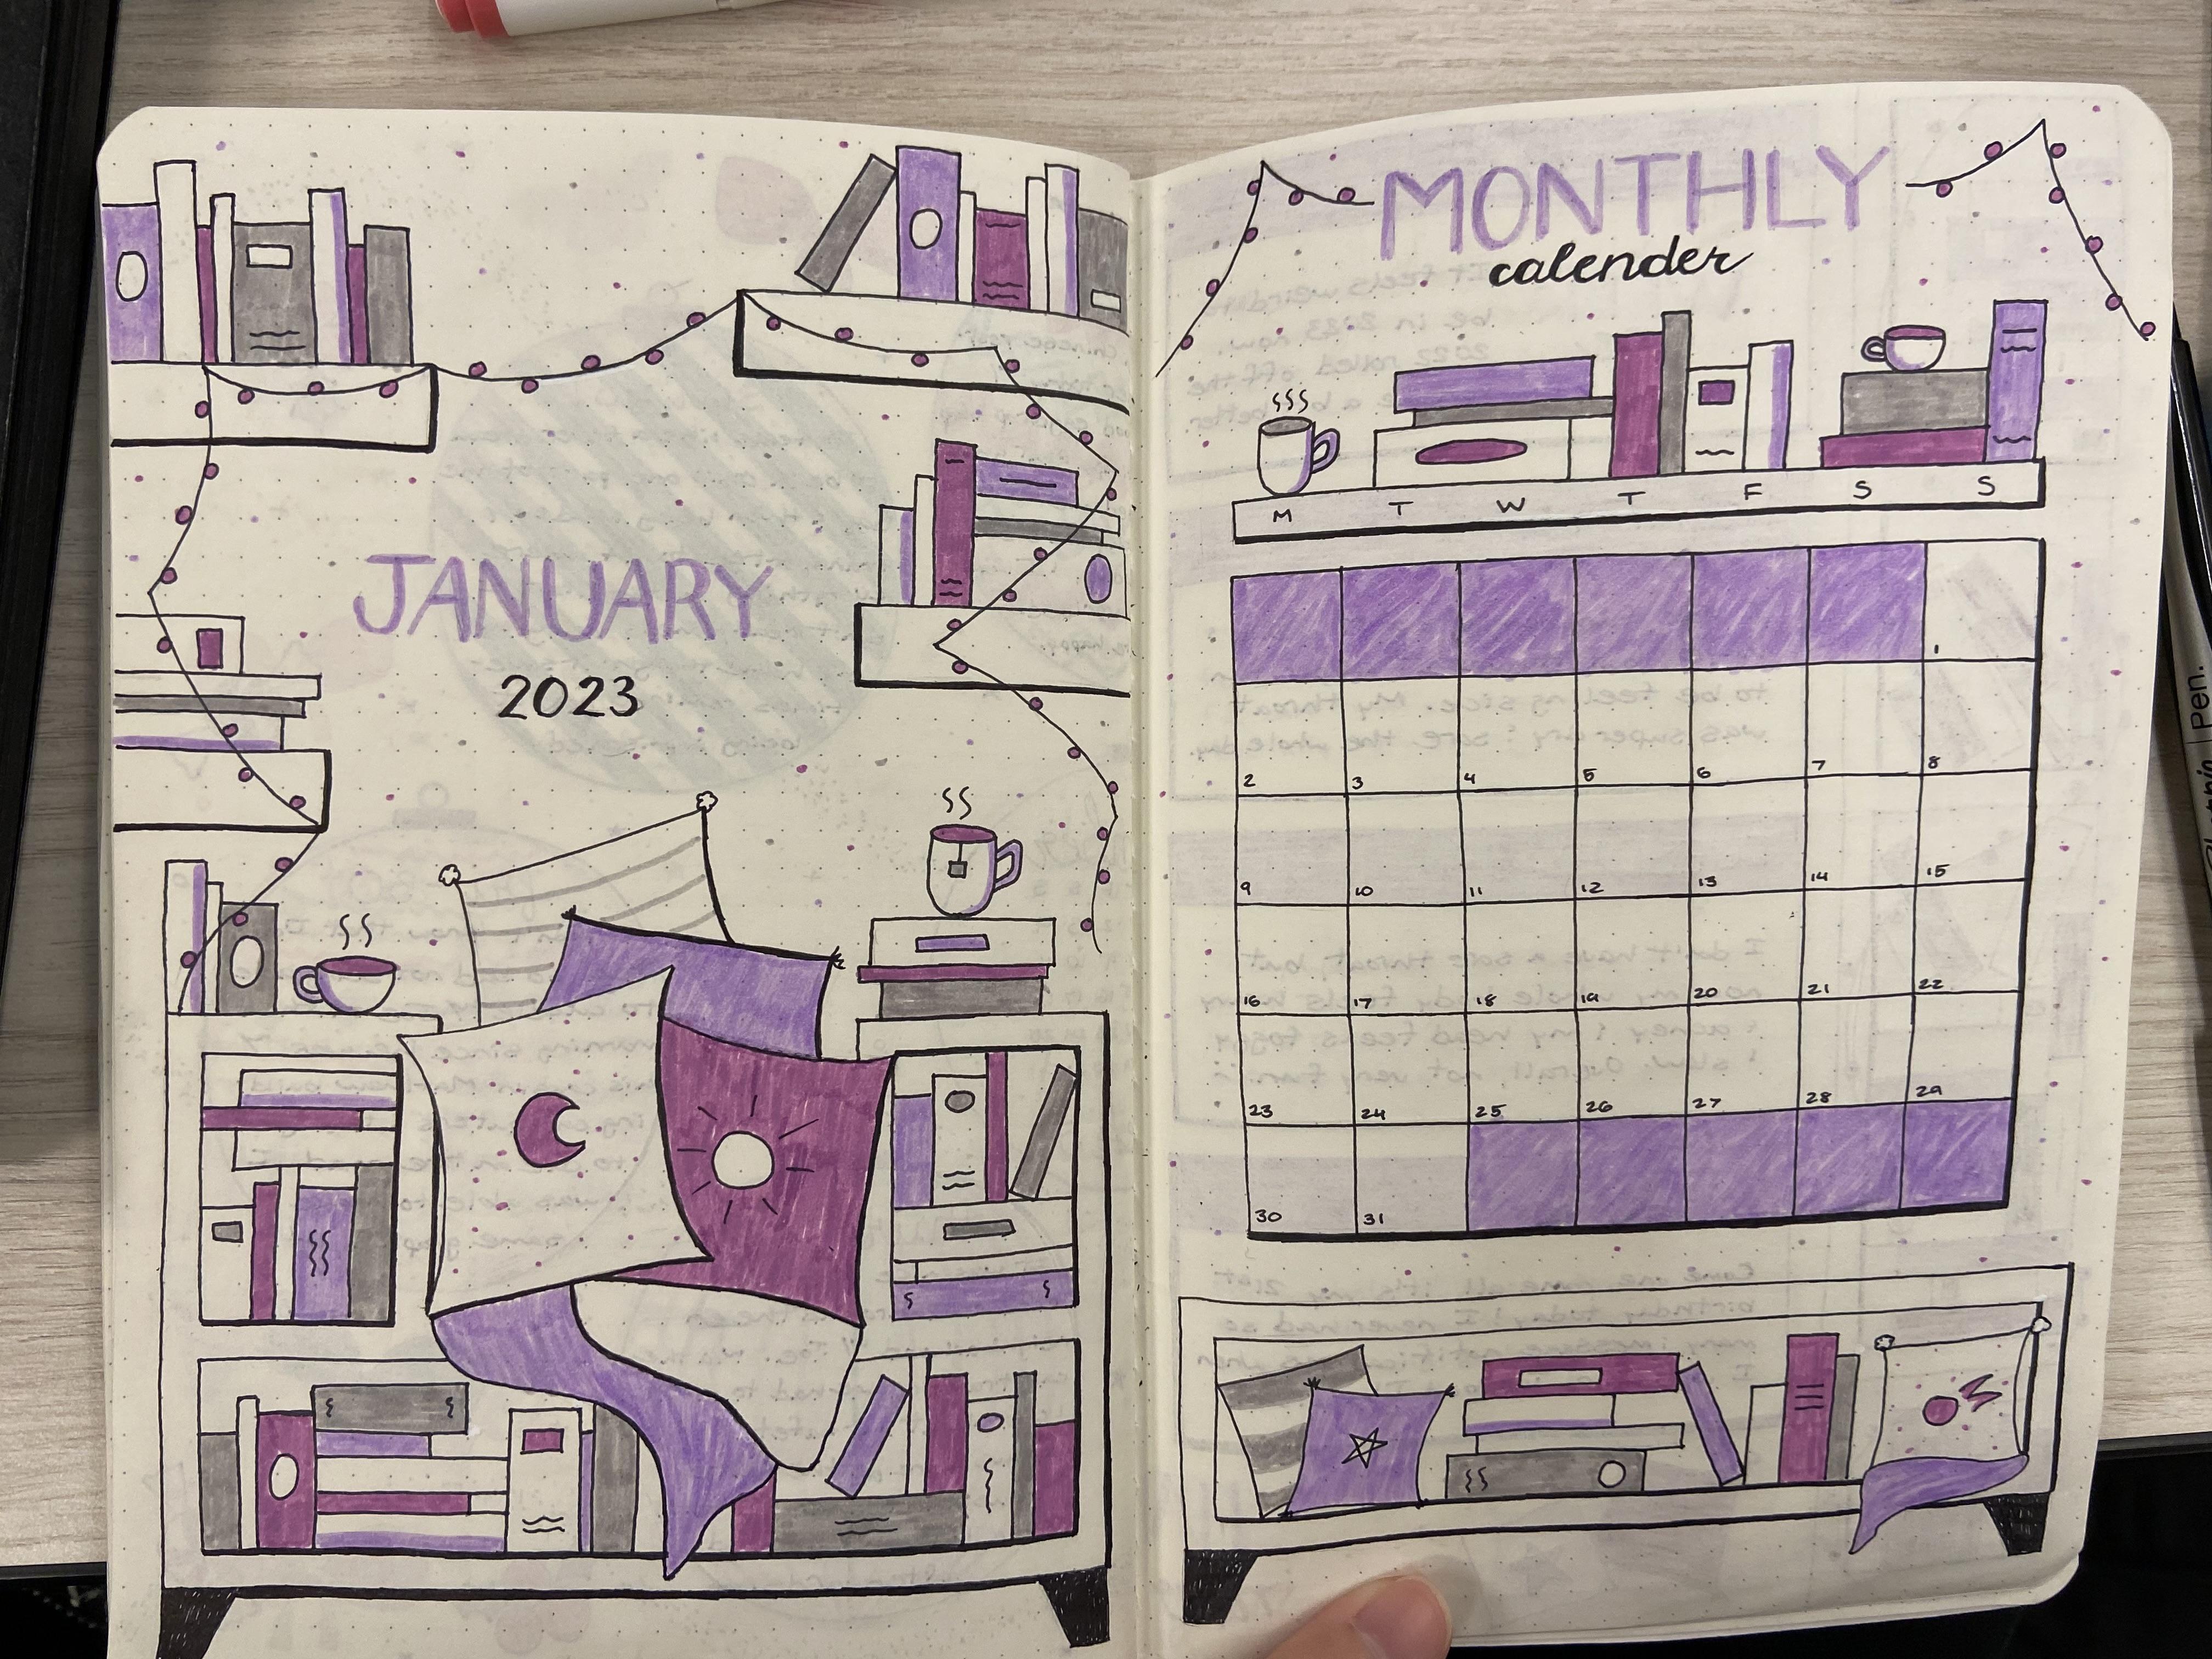 JANUARY
2023
MONTHLY
calender
M T W T F S S
1
2 3 4 5 6 7 8
9 10 11 12 13 14 15
16 17 18 19 20 21 22
23 24 25 26 27 28 29
30 31
Pen.